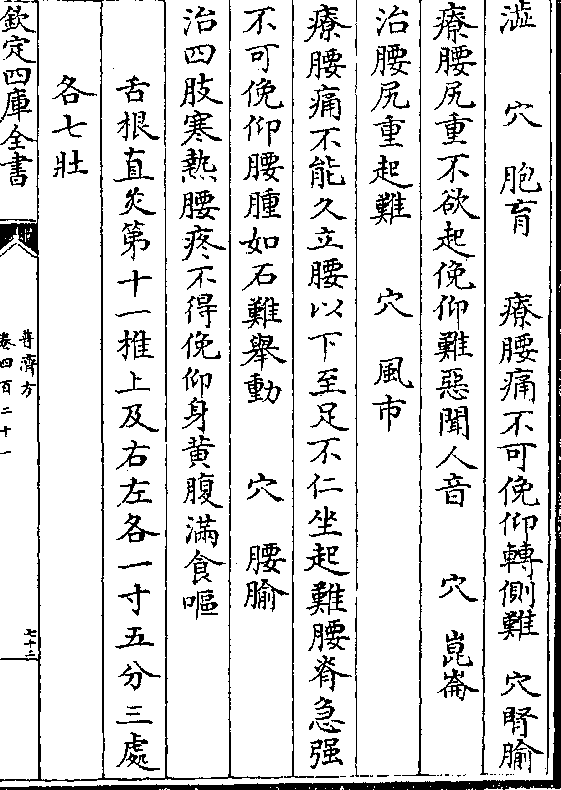 澁　穴　胞肓　療腰痛不可俛仰轉側難　穴腎腧
療腰尻重不欲起俛仰難惡聞人音　穴　崑崙
治腰尻重起難　穴　風市
療腰痛不能久立腰以下至足不仁坐起難腰脊急强
不可俛仰腰腫如石難舉動　穴　腰腧
治四肢寒熱腰疼不得俛仰身黄腹滿食嘔
舌根直灸第十一推上及右左各一寸五分三處
各七壯
欽定四庫全書
普濟方
卷四百二十一
七十三